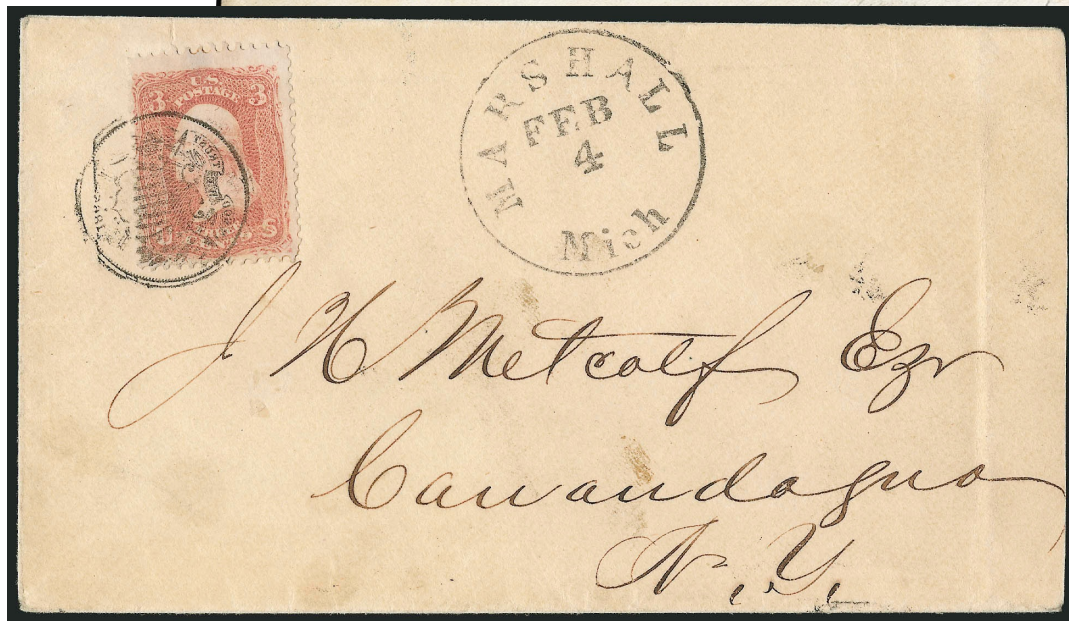 U.S.
POSTAGE
3 3
MARSHALL
FEB
4
Mich
J H Metcalf Ezr
Canandagua
N.Y.